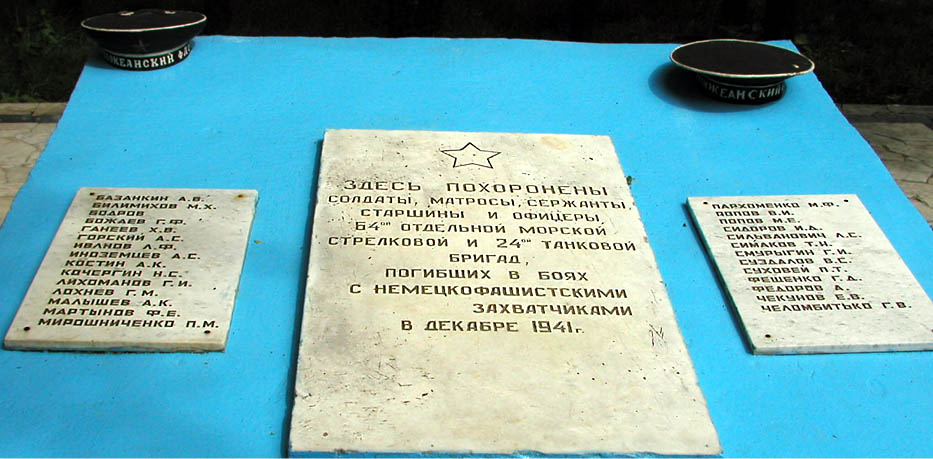 ОКЕАНСКИЙ
КЕАНСКИЙ
БАЗАНКИН А.В.
БИЛИМИХОВ М.Х.
БОДРОВ
БОЖАЕВ Г.Ф.
ГАНЕЕВ Х.В.
ГОРСКИЙ А.С.
ИВАНОВ Л.Ф.
ИНОЗЕМЦЕВ А.С.
КОСТИН А.К.
КОЧЕРГИН Н.С.
ЛИХОМАНОВ Г.И.
ЛОХНЕВ Г.М.
МАЛЫШЕВ А.К.
МАРТЫНОВ Ф.Е.
МИРОШНИЧЕНКО П.М.
ЗДЕСЬ ПОХОРОНЕНЫ
СОЛДАТЫ, МАТРОСЫ, СЕРЖАНТЫ,
СТАРШИНЫ И ОФИЦЕРЫ,
64ой ОТДЕЛЬНОЙ МОРСКОЙ
СТРЕЛКОВОЙ И 24ой ТАНКОВОЙ
БРИГАД,
ПОГИБШИХ В БОЯХ
С НЕМЕЦКОФАШИСТСКИМИ
ЗАХВАТЧИКАМИ
В ДЕКАБРЕ 1941г.
ПАРХОМЕНКО М.Ф.
ПОПОВ В.И.
ПОПОВ М.Е.
СИДОРОВ И.Д.
СИЛЬВАНОВИЧ Л.С.
СИМАКОВ Т.Н.
СМУРЫГИН Г.И.
СУЗДАЛОВ В.С.
СУХОВЕЙ П.Т.
ФЕЩЕНКО Т.Д.
ФЕДОРОВ А.
ЧЕКУНОВ Е.В.
ЧЕЛОМБИТЬКО Г.В.